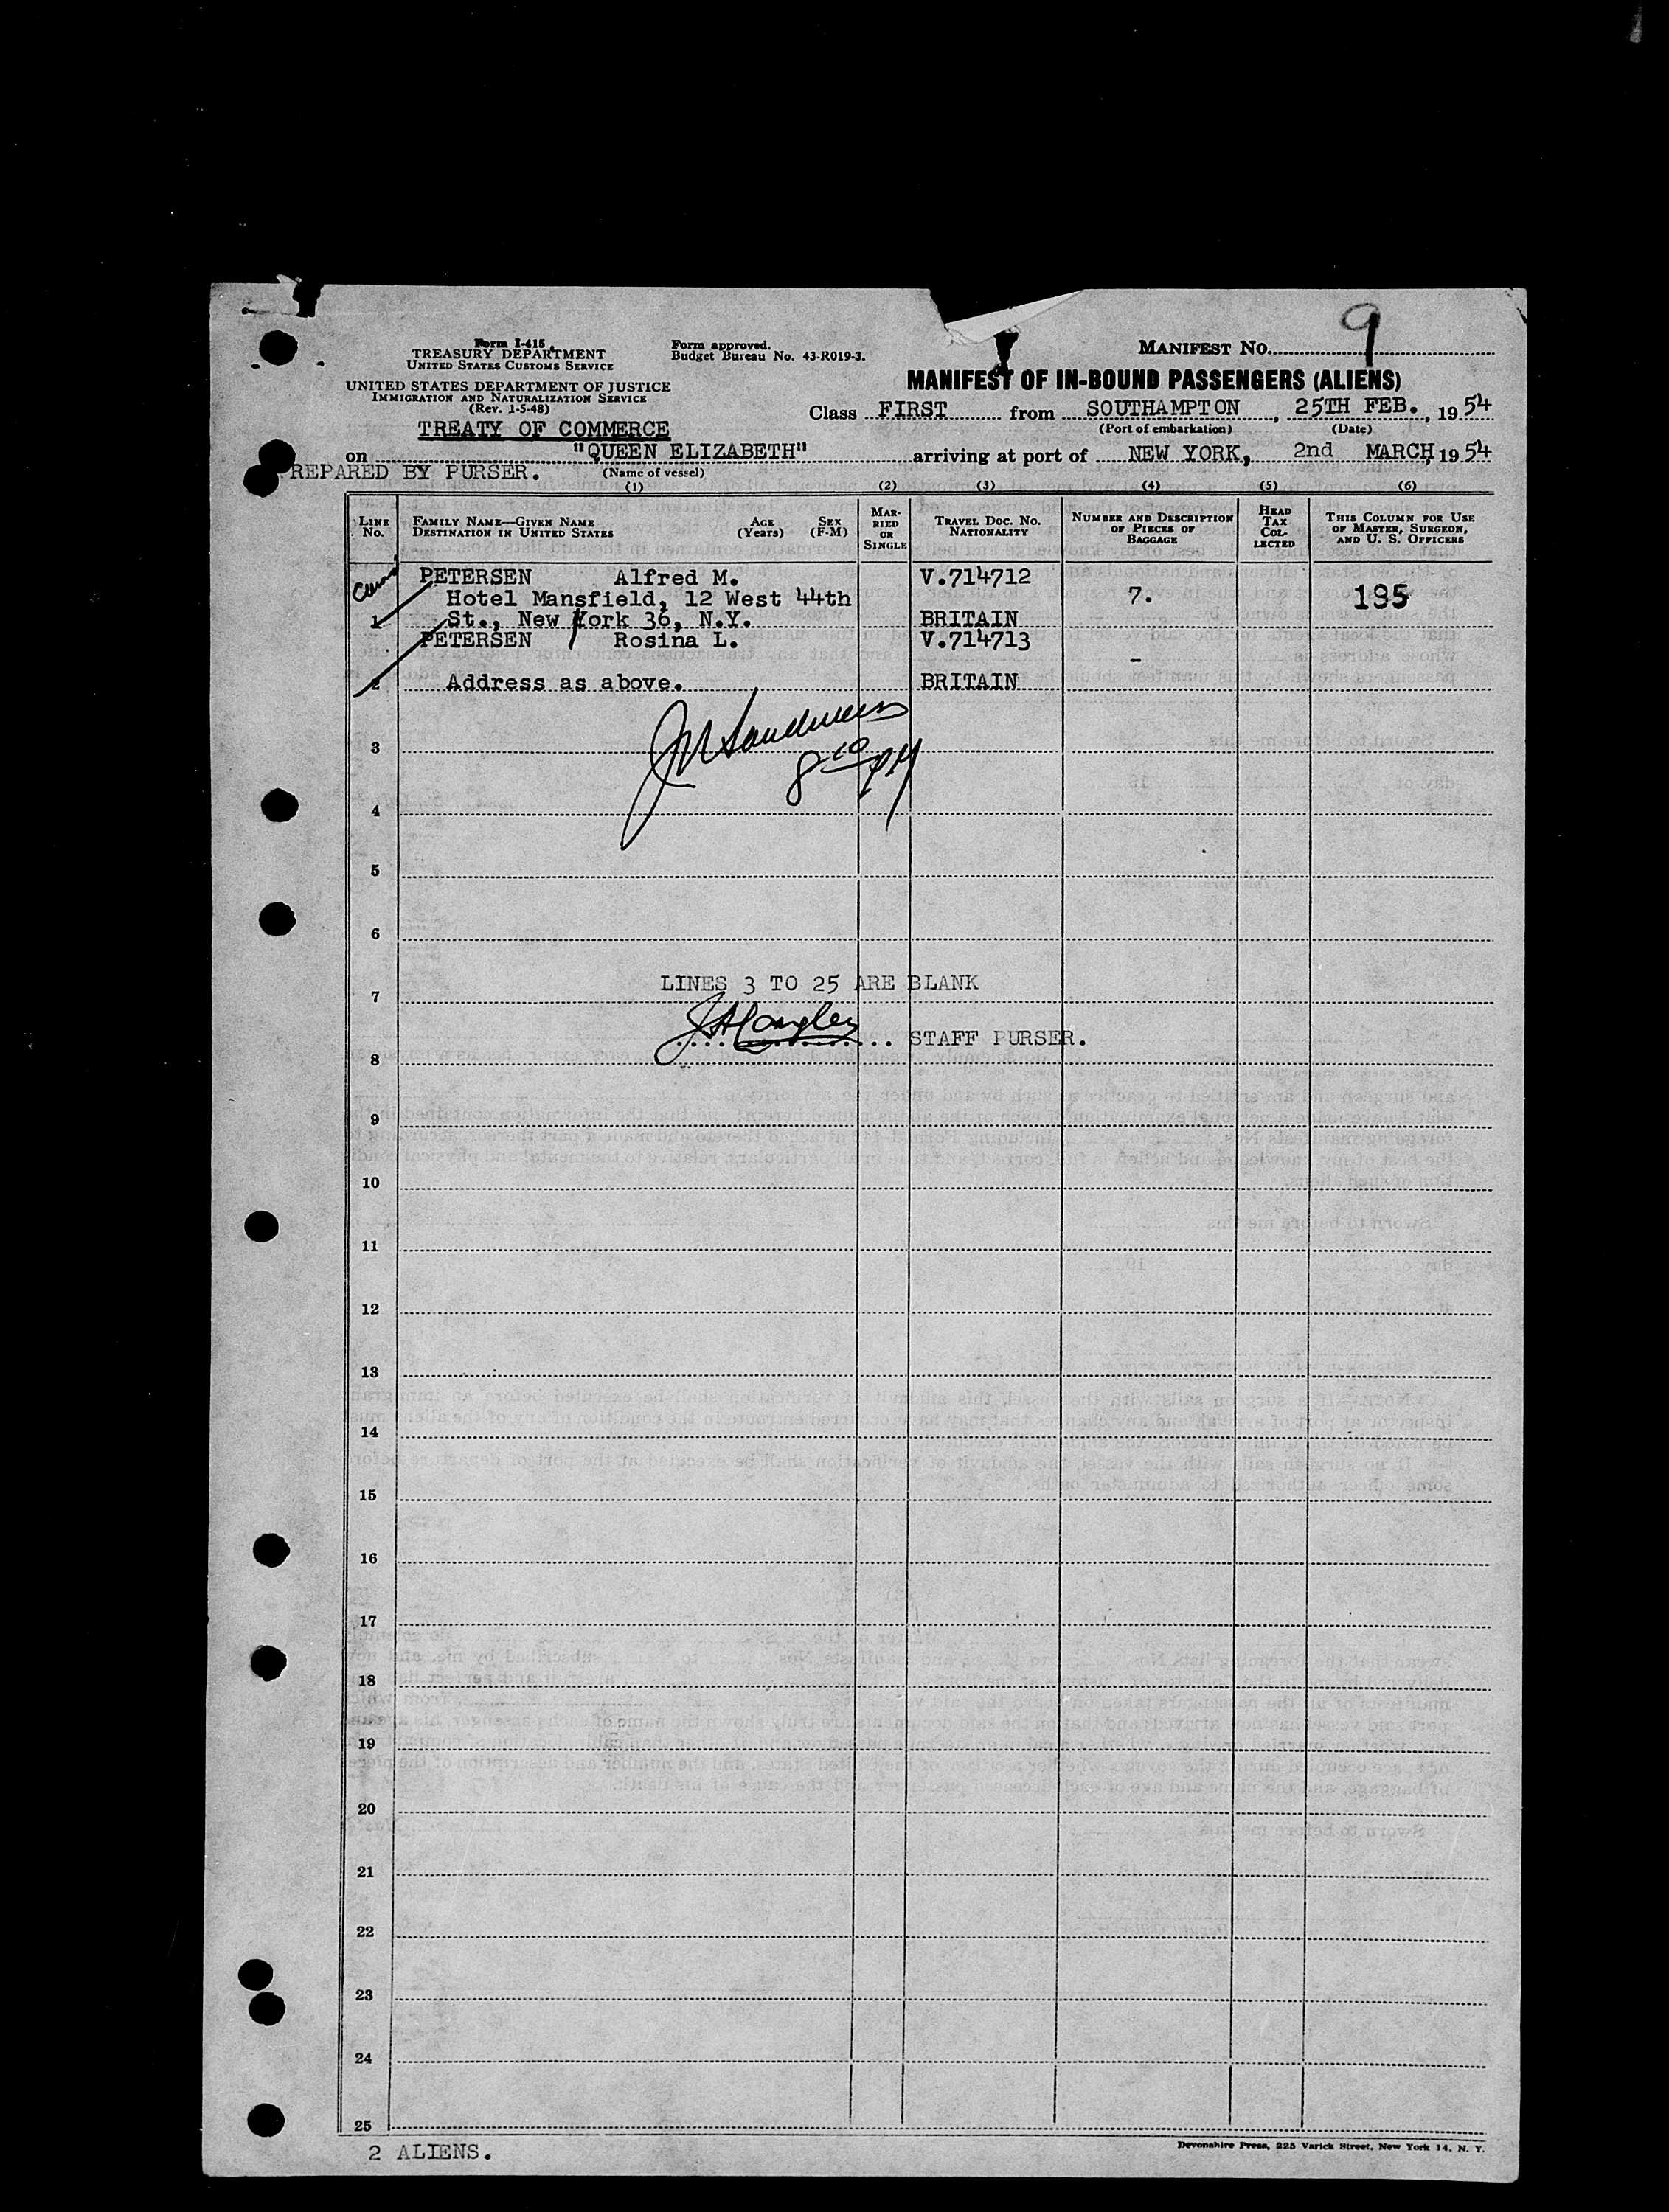 9
Form I-415
TREASURY DEPARTMENT
UNITED STATES CUSTOMS SERVICE
Form approved.
Budget Bureau No. 43-R019-3.
MANIFEST NO.
UNITED STATES DEPARTMENT OF JUSTICE
IMMIGRATION AND NATURALIZATION SERVICE
(Rev. 1-5-48)
MANIFEST OF IN-BOUND PASSENGERS (ALIENS)
Class FIRST from SOUTHAMPTON, 25TH FEB., 1954
(Port of embarkation) (Date)
TREATY OF COMMERCE
on "QUEEN ELIZABETH" arriving at port of NEW YORK, 2nd MARCH, 1954
REPARED BY PURSER. (Name of vessel)
(1) (2) (3) (4) (5) (6)
LINE NO.
FAMILY NAME—GIVEN NAME
DESTINATION IN UNITED STATES
AGE (Years)
SEX (F-M)
MARRIED OR SINGLE
TRAVEL DOC. NO.
NATIONALITY
NUMBER AND DESCRIPTION OF PIECES OF BAGGAGE
HEAD TAX COLLECTED
THIS COLUMN FOR USE OF MASTER, SURGEON, AND U. S. OFFICERS
PETERSEN Alfred M. V.714712
Hotel Mansfield, 12 West 44th 7. 195
1 St., New York 36, N.Y. BRITAIN
PETERSEN Rosina L. V.714713
-
2 Address as above. BRITAIN
3
8 10 PM
4
5
6
LINES 3 TO 25 ARE BLANK
7
STAFF PURSER.
8
9
10
11
12
13
14
15
16
17
18
19
20
21
22
23
24
25
2 ALIENS.
Devonshire Press, 225 Varick Street, New York 14, N. Y.